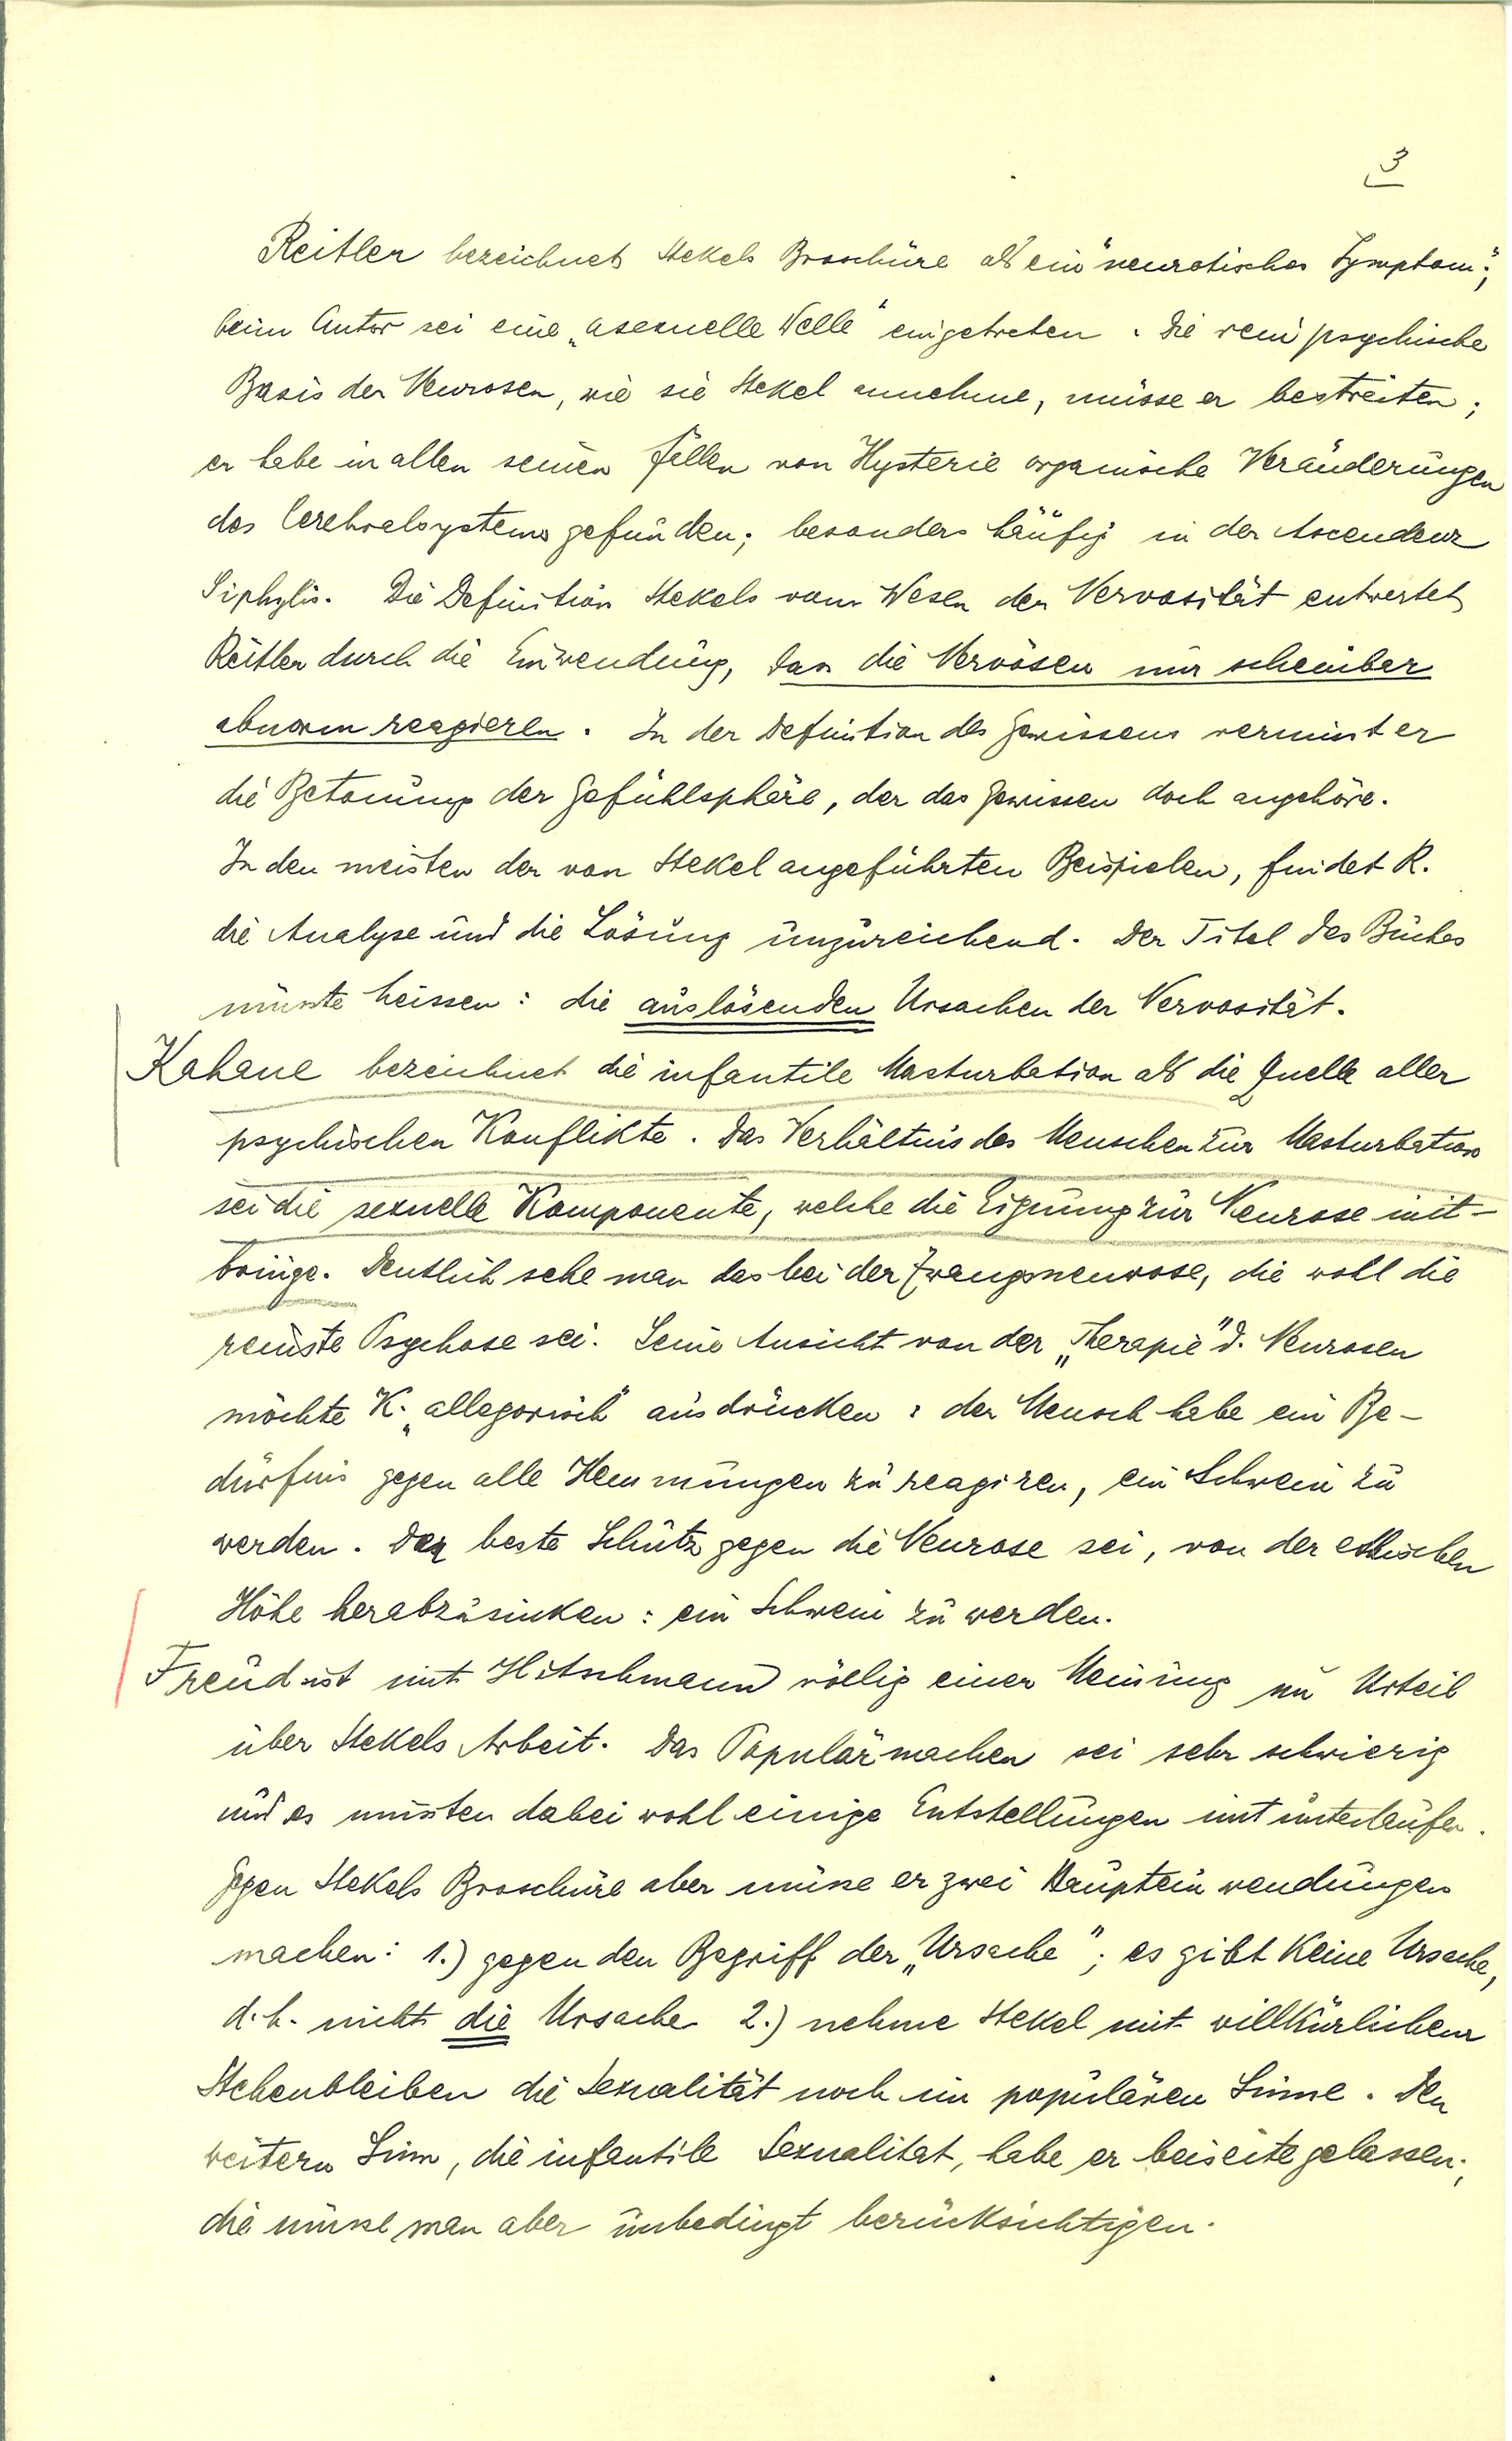 3
Reitler bezeichnet Stekels Broschüre als ein "neurotisches Symptom";
beim Autor sei eine „asexuelle Welle" eingetreten. Die rein psychische
Basis der Neurosen, wie sie Stekel annehme, müsse er bestreiten;
er habe in allen seinen Fällen von Hysterie organische Veränderungen
des Cerebralsystems gefunden; besonders häufig in der Ascendenz
Siphylis. Die Definition Stekels vom Wesen der Nervosität entwertet
Reitler durch die Einwendung, dass die Nervösen nur scheinbar
abnorm reagieren. In der Definition des Gewissens vermisst er
die Betonung der Gefühlsphäre, der das Gewissen doch angehöre.
In den meisten der von Stekel angeführten Beispielen, findet R.
die Analyse und die Lösung unzureichend. Der Titel des Buches
müsste heissen: die auslösenden Ursachen der Nervosität.
Kahane bezeichnet die infantile Masturbation als die Quelle aller
psychischen Konflikte. Das Verhältnis des Menschen zur Masturbation
sei die sexuelle Komponente, welche die Eignung zur Neurose mit-
bringe. Deutlich sehe man das bei der Zwangsneurose, die wohl die
reinste Psychose sei. Seine Ansicht von der „Therapie" d. Neurosen
möchte K. „allegorisch" ausdrücken: der Mensch habe ein Be-
dürfnis gegen alle Hemmungen zu reagiren, ein Schwein zu
werden. Der beste Schutz gegen die Neurose sei, von der ethischen
Höhe herabzusinken: ein Schwein zu werden.
Freud ist mit Hitschmann völlig einer Meinung im Urteil
über Stekels Arbeit. Das Populärmachen sei sehr schwierig
und es müssten dabei wohl einige Entstellungen mit unterlaufen.
Gegen Stekels Broschüre aber müsse er zwei Haupteinwendungen
machen: 1.) gegen den Begriff der „Ursache"; es gibt keine Ursache,
d.h. nicht die Ursache 2.) nehme Stekel mit willkürlichem
Stehenbleiben die Sexualität noch im populären Sinne. Den
weitern Sinn, die infantile Sexualitat, habe er beiseite gelassen;
die müsse man aber unbedingt berücksichtigen.